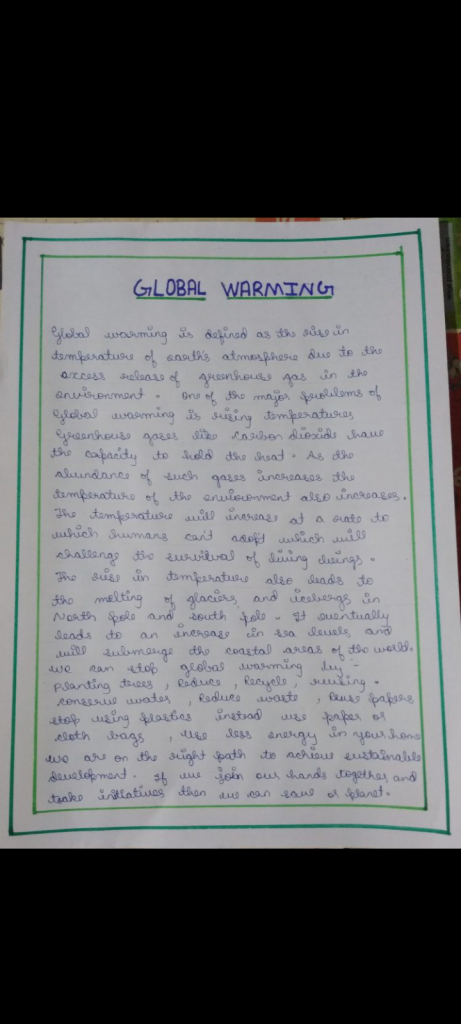 GLOBAL WARMING
Global warming is defined as the rise in
temperature of earth's atmosphere due to the
excess release of greenhouse gas in the
environment. One of the major problems of
Global warming is rising temperatures,
Greenhouse gases like Carbon dioxide have
the capacity to hold the heat. As the
abundance of such gases increases the
temperature of the environment also increases.
The temperature will increase at a rate to
which humans can't adopt which will
challenge the survival of living beings.
The rise in temperature also leads to
the melting of glaciers, and icebergs in
North pole and south pole. It eventually
leads to an increase in sea levels, and
will submerge the coastal areas of the world.
we can stop global warming by -
Planting trees, Reduce, Recycle, reusing.
conserve water, Reduce waste, Reuse papers
stop using plastics instead use paper or
cloth bags, Use less energy in your home
we are on the right path to achieve sustainable
development. If we join our hands together, and
take initiatives then we can save or planet.